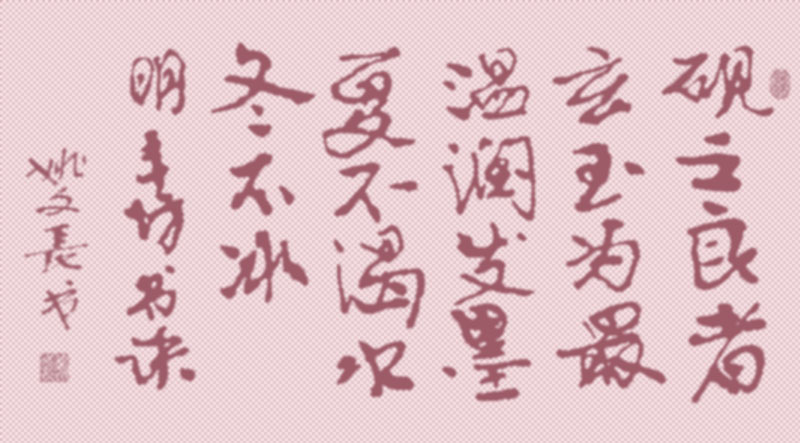 砚之良者
玄玉为最
温润发墨
夏不渴水
冬不冰
明丰坊书诀
姚文長书